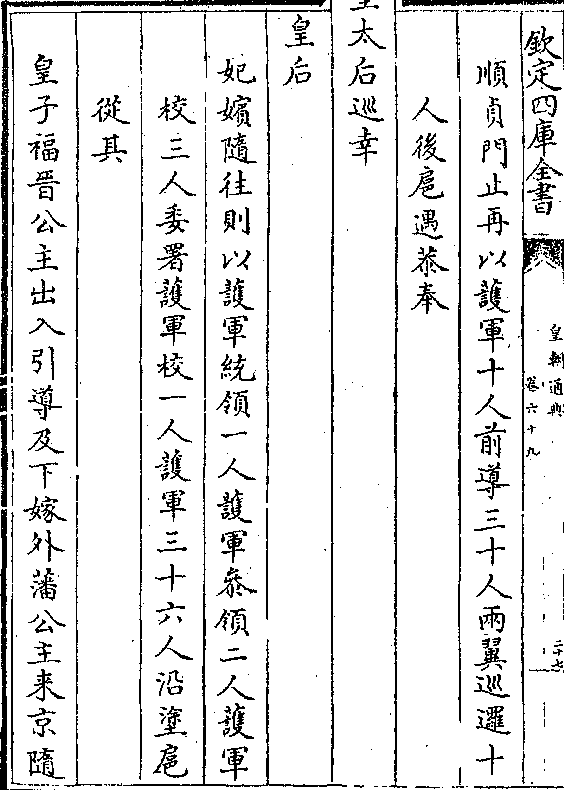 欽定四庫全書
皇朝通典
卷六十九
順貞門止再以護軍十人前導三十人兩翼巡邏十
人後扈遇恭奉
皇太后巡幸
皇后
妃嬪隨往則以護軍統領一人護軍叅領二人護軍
校三人委署護軍校一人護軍三十六人沿塗扈
從其
皇子福晉公主出入引導及下嫁外藩公主来京隨